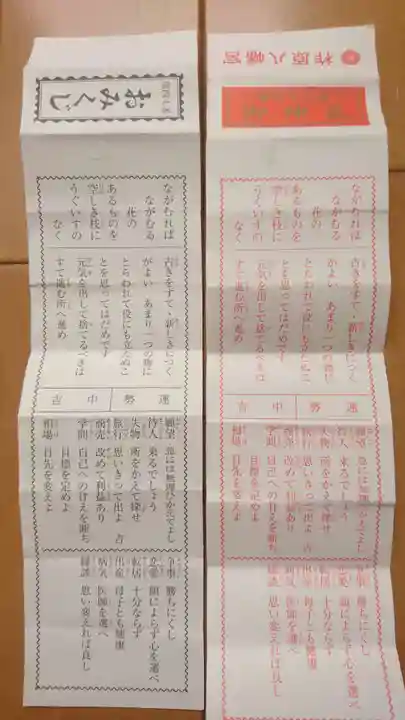 おみくじ
ながむれば
ながむる
花の
あるものを
空しき枝に
うぐいすの
なく
古きをすて、新しきにつく
がよい あまり一つの物に
とらわれて役にも立たぬこ
とを思ってはだめです
元気を出して捨てるべきは
すて進む所へ進め
運勢 中吉
願望 急には無理ひかえてよし
待人 来るでしょう
失物 所をかえて捜せ
旅行 思いきって出よ 吉
商売 改めて利益あり
学問 自己への甘えを断ち
目標を定めよ
相場 目先を変えよ
争事 勝ちにくし
恋愛 顔によらず心を選べ
転居 十分ならず
出産 母子とも健康
病気 医師を選べ
縁談 思い変えれば良し
柞原八幡宮
ながむれば
ながむる
花の
あるものを
空しき枝に
うぐいすの
なく
古きをすて、新しきにつく
がよい あまり一つの物に
とらわれて役にも立たぬこ
とを思ってはだめです
元気を出して捨てるべきは
すて進む所へ進め
運勢 中吉
願望 急には無理ひかえてよし
待人 来るでしょう
失物 所をかえて捜せ
旅行 思いきって出よ 吉
商売 改めて利益あり
学問 自己への甘えを断ち
目標を定めよ
相場 目先を変えよ
争事 勝ちにくし
恋愛 顔によらず心を選べ
転居 十分ならず
出産 母子とも健康
病気 医師を選べ
縁談 思い変えれば良し